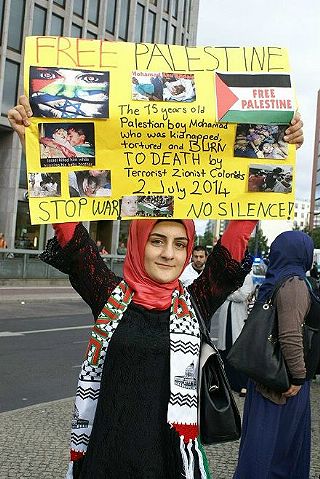 FREE PALESTINE
The 15 years old
Palestinian boy Mohamad
who was kidnapped,
tortured and BURN
TO DEATH by
Terrorist Zionist Colonists
2. July 2014
FREE
PALESTINE
STOP WAR
NO SILENCE!